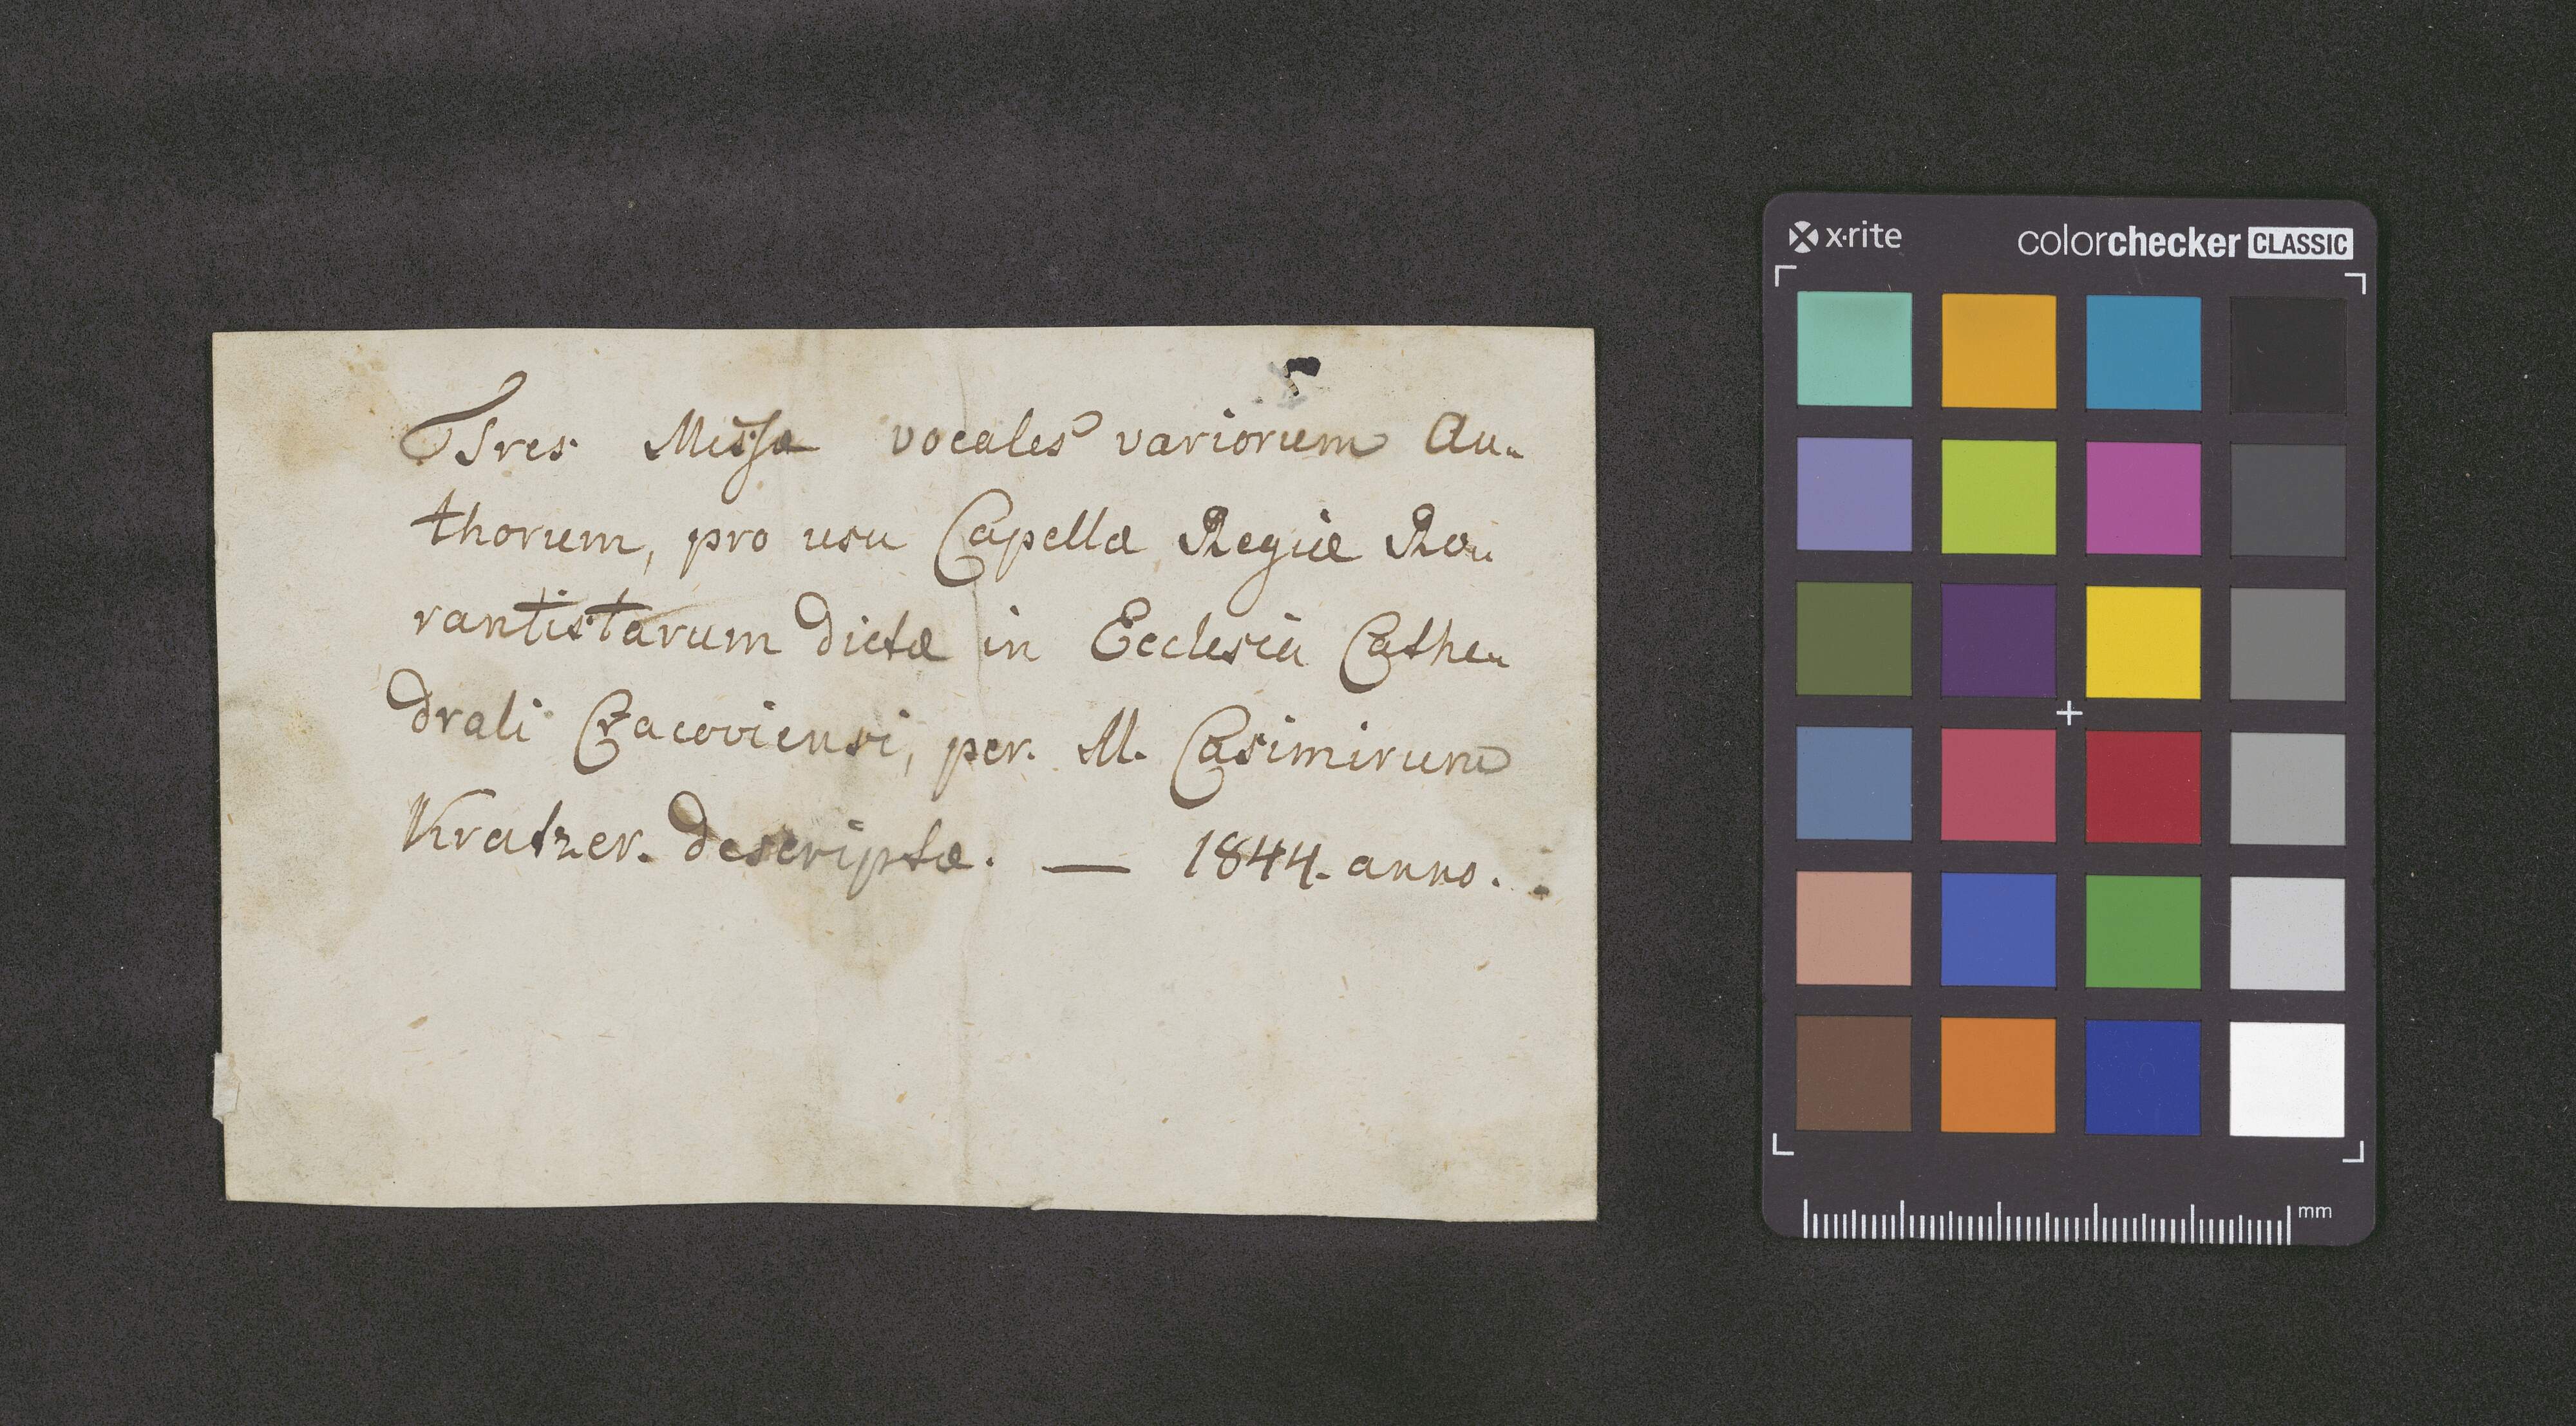 Tres Missæ vocales variorum Au-
thorum, pro usu Capellæ Regiæ Ro-
rantistarum dictæ in Ecclesia Cathe-
drali Cracoviensi, per. M. Casimirum
Kratzer. descriptæ. — 1844. anno.
x·rite
colorchecker CLASSIC
mm